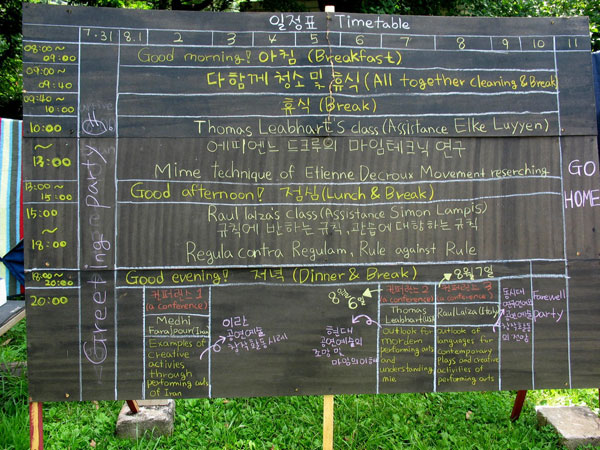 일정표 Timetable
7.31 8.1 2 3 4 5 6 7 8 9 10 11
08:00~
09:00
Good morning! 아침 (Breakfast)
09:00~
09:40
다함께 청소 및 휴식 (All together cleaning & Break
09:40~
10:00
휴식 (Break)
10:00
~
13:00
Thomas Leabhart's class (Assistance Elke Luyyen)
에띠엔느 드크루의 마임테크닉 연구
Mime technique of Etienne Decroux Movement reserching
13:00~
15:00
Good afternoon! 점심 (Lunch & Break)
15:00
~
18:00
Raul Iaiza's class (Assistance Simon Lampis)
규칙에 반하는 규칙, 관습에 대항하는 규칙
Regula contra Regulam, Rule against Rule
18:00~
20:00
Good evening! 저녁 (Dinner & Break)
20:00
Greeting party
GO
HOME
컨퍼런스 1
(a conference)
Medhi
Farajpour(Iran)
Examples of
creative
activies
through
performing arts
of Iran
이란
공연예술
창작활동사례
8월
6일
현대
공연예술의
조망 및
마임의 이해
컨퍼런스 2
(a conference)
Thomas
Leabhart(us)
outlook for
mordern
performing arts
and
understanding
mie
8월 7일
컨퍼런스 3
(a conference)
Raul Iaiza (Italy)
outlook of
languages for
contemporary
plays and creative
activities of
performing arts
동시대
공연예술
Farewell
party